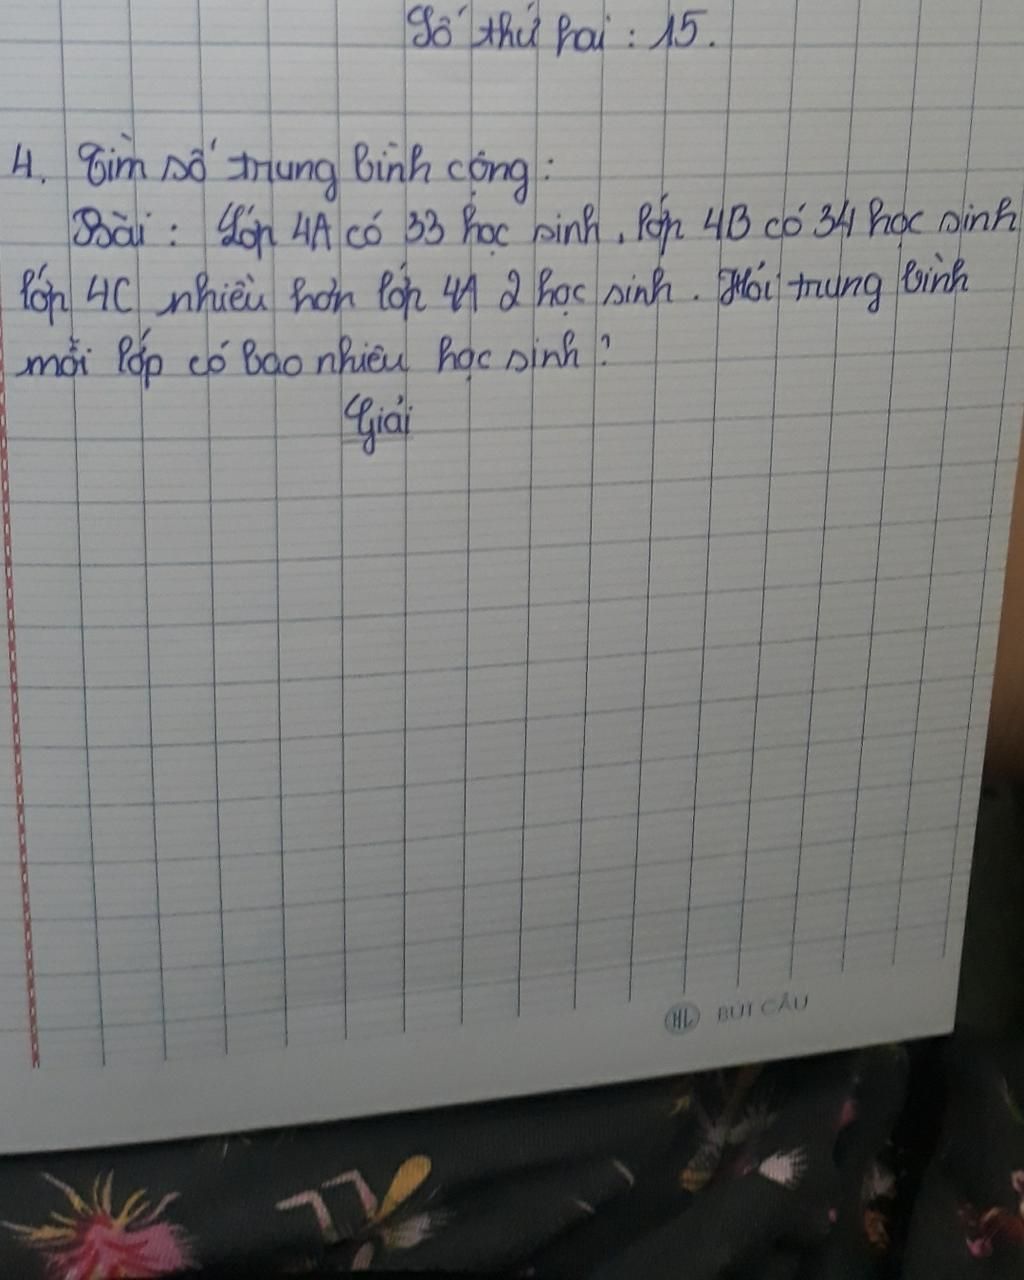 Số thứ hai : 15.
4. Tìm số trung bình cộng :
Bài : Lớp 4A có 33 học sinh, lớp 4B có 34 học sinh
lớp 4C nhiều hơn lớp 4A 2 học sinh. Hỏi trung bình
mỗi lớp có bao nhiêu học sinh ?
Giải
HL BÚT CÂU